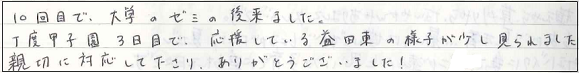 10回目で、大学のゼミの後来ました。
丁度甲子園3日目で、応援している益田東の様子が少し見られました
親切に対応して下さり、ありがとうございました!